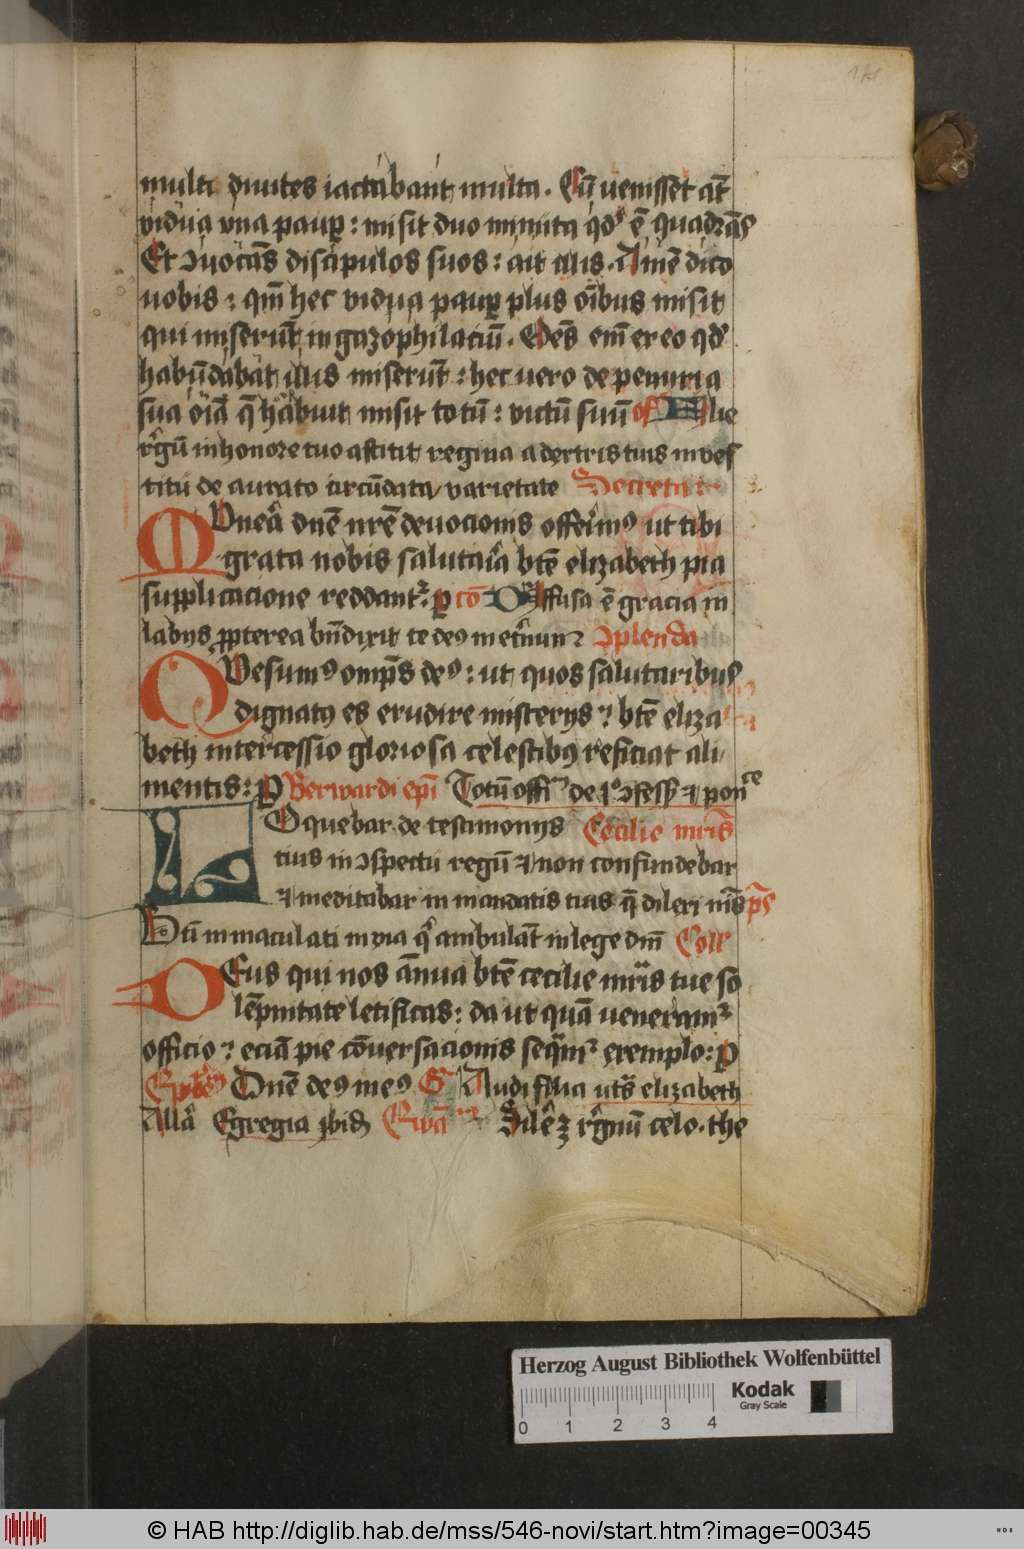 171
multi diuites iactabant multa. Cū uenisset aūt
vidua vna paup : misit duo minuta qd' ē quadrās
Et ↄuocās discipulos suos : ait illis. Amē dico
uobis : qm̄ hec vidua paup plus oībus misit
qui miserūt in gazophilaciū. Om̄s em̄ ex eo qd'
habūdabāt illis miserūt : hec uero de penuria
sua oīa q̄ habuit misit totū : victū suū of Filie
rȝgū in honore tuo astitit regina a dextris tuis in ves
titu de aurato circūdata varietate Secreta
Munera dn̄e nr̄e deuocionis offerimꝰ ut tibi
grata nobis salutaria btē elizabeth pia
supplicacione reddant. p cō Diffusa ē gracia in
labijs ppterea bn̄dixit te deꝰ in eternum ↄplenda
Quesumꝰ omps deꝰ : ut quos salutaribus
dignatꝰ es erudire misterijs : btē eliza
beth intercessio gloriosa celestibꝰ reficiat ali
mentis : p Berwardi epi Totū offm de ↄfess ⁊ ponce
Loquebar de testimonijs Cecilie mris
tuis in ↄspectu regū ⁊ non confundebar
⁊ meditabar in mandatis tuis q̄ dilexi nimis ps
Bti inmaculati in via q ambulāt in lege dm̄ Coll
Deus qui nos ānua btē cecilie mris tue so
lēpnitate letificas : da ut quā ueneramur
officio : eciā pie cōuersacionis sequamur exemplo : p
Epla Dn̄e deꝰ meꝰ Gr Audi filia uts elizabeth
Alla Egregia ibid Ewā Sile ē rȝgnū celo. the
Herzog August Bibliothek Wolfenbüttel
Kodak
Gray Scale
0 1 2 3 4
© HAB http://diglib.hab.de/mss/546-novi/start.htm?image=00345
HAB